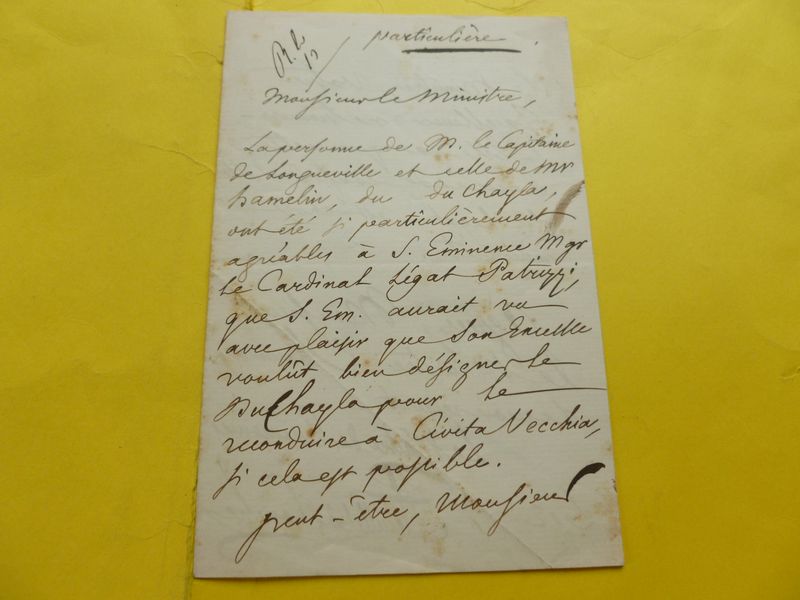 R. le
17
particulière.
Monsieur le Ministre,
La personne de M. le Capitaine
de Longueville et celle de Mr
hamelin, du du Chayla,
ont été si particulièrement
agréables à S. Eminence Mgr
le Cardinal Légat Patrizzi,
que S. Em. aurait vu
avec plaisir que Son Excellce
voulût bien désigner le
Du Chayla pour le
reconduire à Civita Vecchia,
si cela est possible.
peut-être, Monsieur